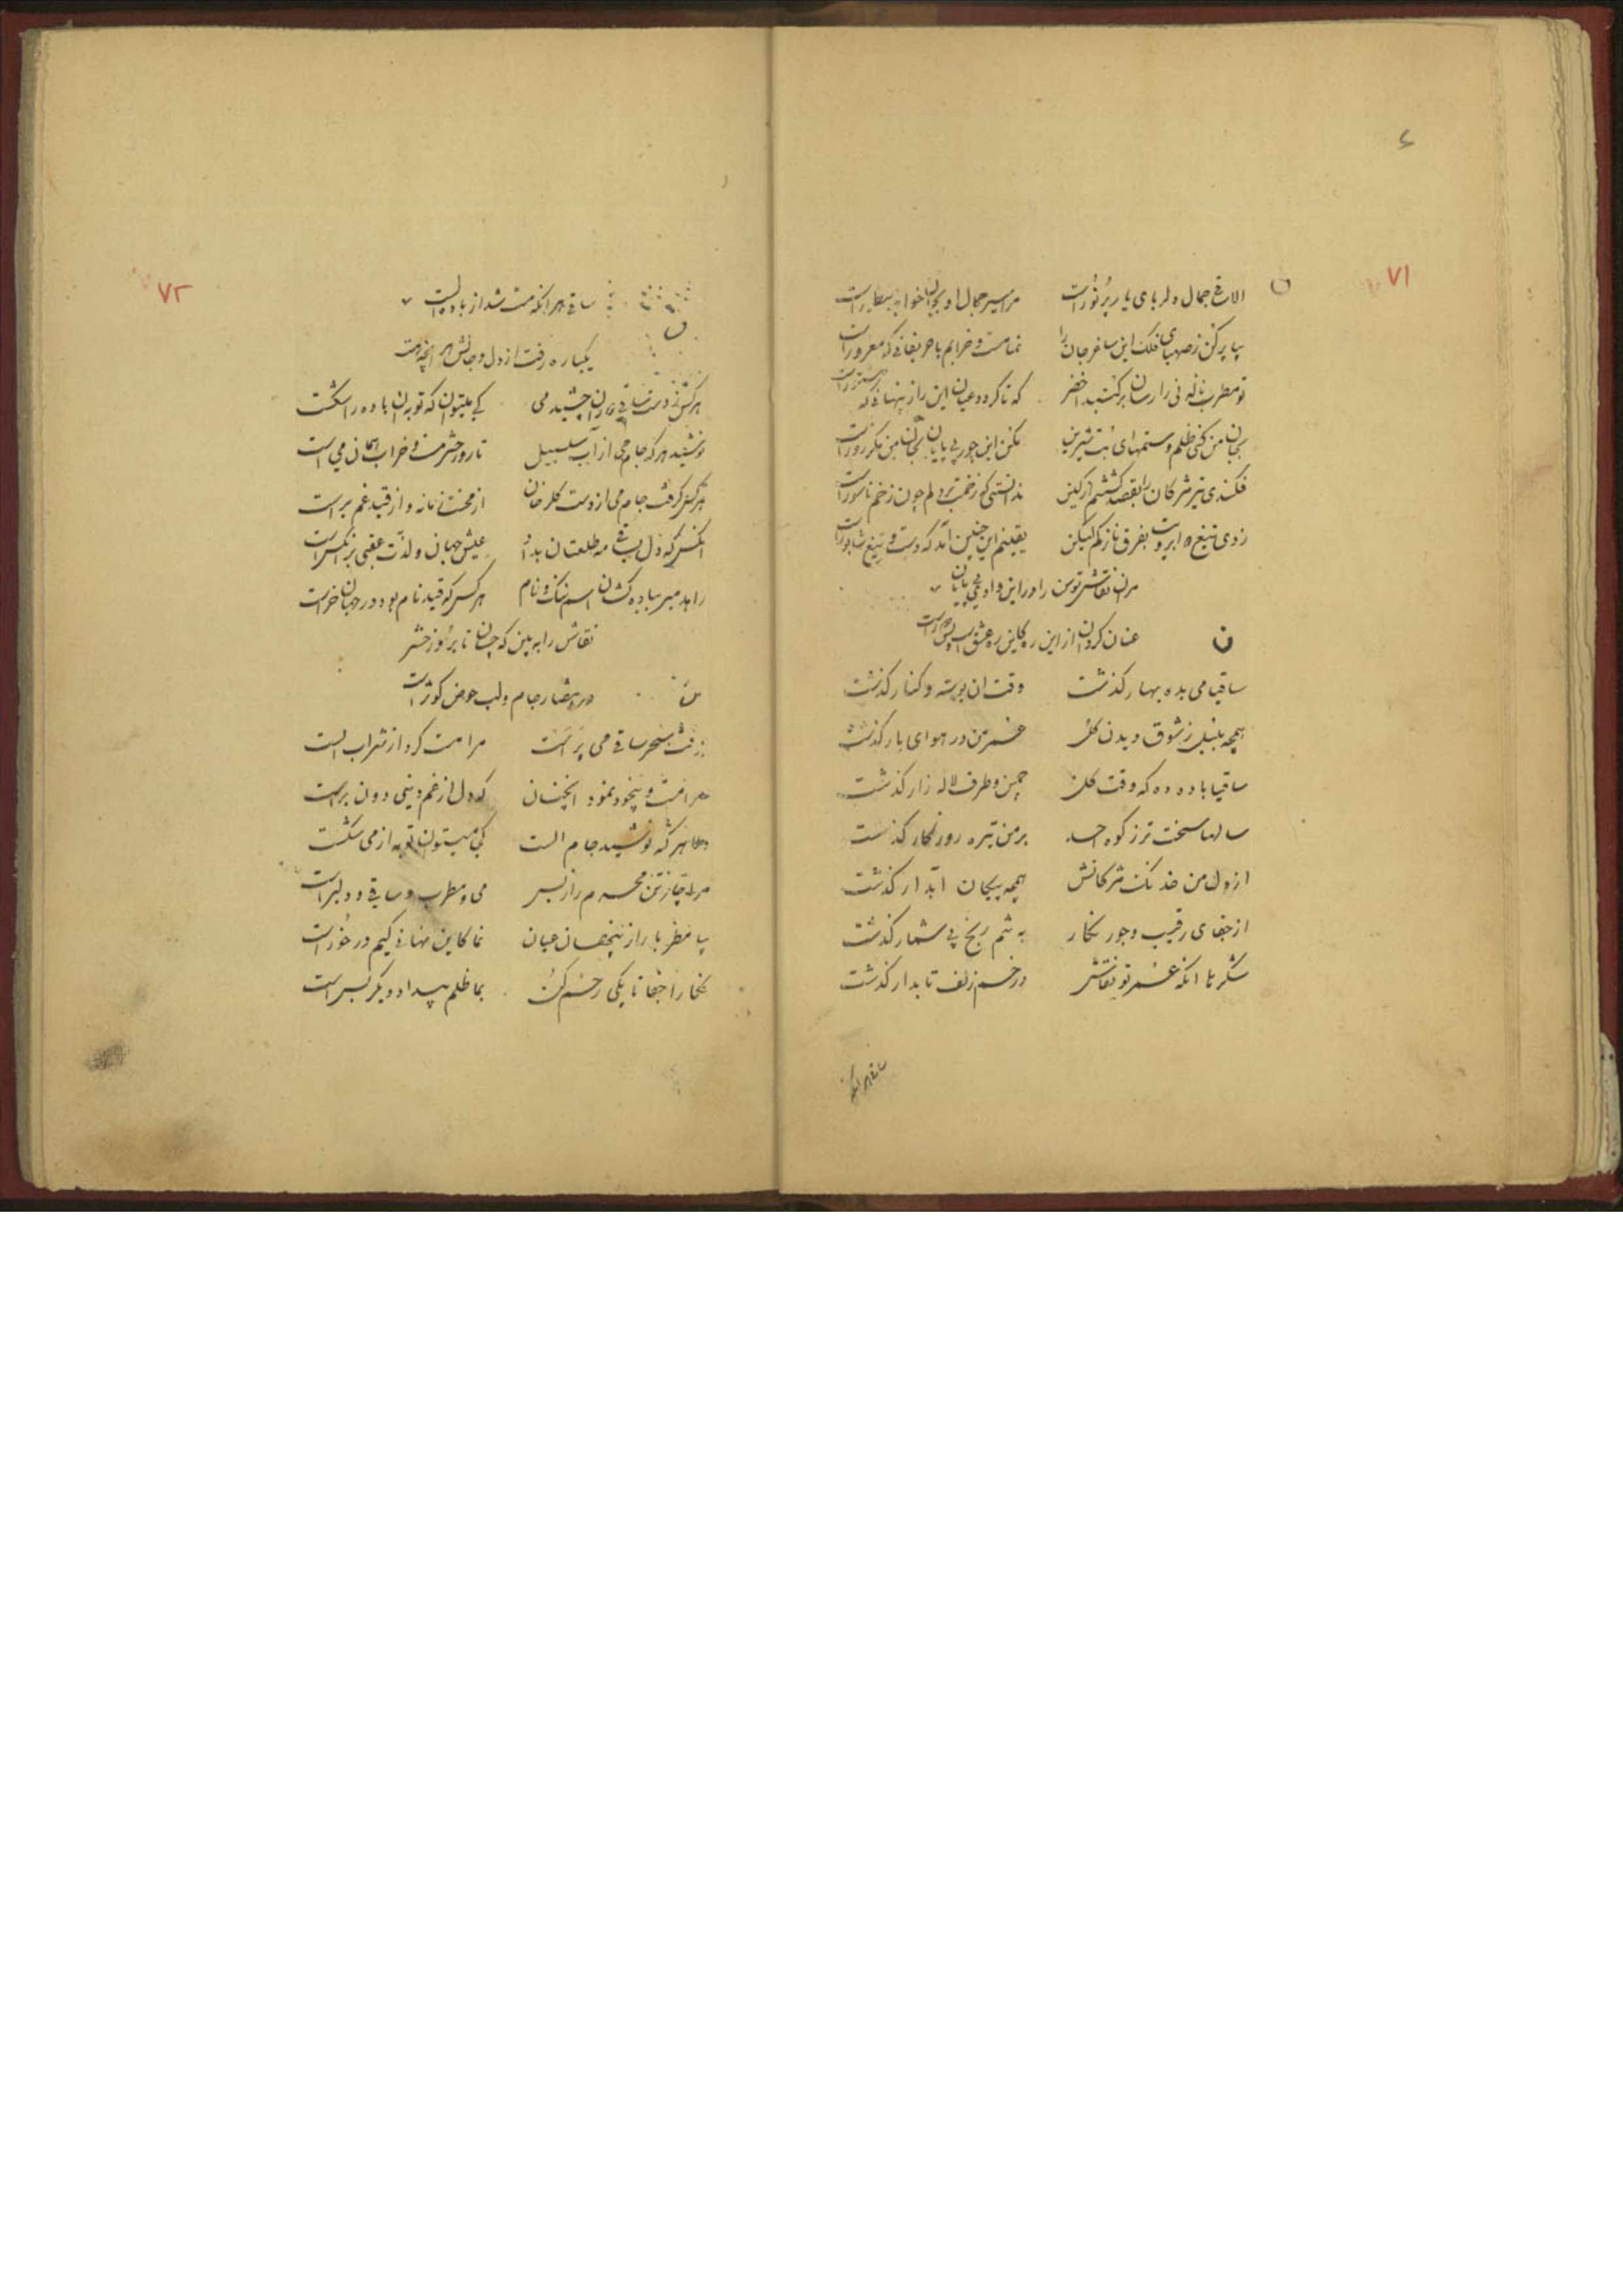 ۷۱
الا ساقی جمال دلربای یار پر نور است
بیا پر کن ز صهبای فلک این ساغر جان را نما مست و خرابم با حریفانی که مغرور است
تو مطرب ناله نی را رسان بر گنبد اخضر که تا گردد عیان این راز پنهانی که مستور است
بجان من کنی ظلم و ستمهای بت شیرین مکن این جور بی پایان بجان من نکر زور است
فکندی تیر مژگان را بقصد کشتنم از کین ندانستی که زخمت بر دلم چون زخم ناسور است
زدی تیغ دو ابرویت بفرق نازکم لیکن یقینم این چنین آمد که دست و تیغ شاپور است
مران نقاش توسن را در این وادی بی پایان
عنان گردان از این ره کاین ره عشق است
ساقیا می بده بهار گذشت وقت ان بوسه و کنار گذشت
همچه بلبل ز شوق دیدن گل عمر من در هوای یار گذشت
ساقیا باده ده که وقت گل چمن و طرف لاله زار گذشت
سالها سخت تر ز کوه احد بر من تیره روزگار گذشت
از دل من خدنگ مژگانش همچه پیکان ابدار گذشت
از جفای رقیب و جور نگار به تنم رنج بی شمار گذشت
شکر نا انکه عمر تو نقاش در خم زلف تابدار گذشت
ساقی هر انکه
۷۲
ساقی هر انکه مست شد از باده الست
یکباره رفت از دل و جانش هر انچه هست
هر کس ز دست ساقی دوران چشید می کی میتوان که توبه ان باده را شکست
نوشید هر که جام می از آب سلسبیل تا روز حشر مست و خراب همان می است
هر کس گرفت جام می از دست گلرخان از محنت زمانه و از قید غم برست
انکس که دل بساقی مه طلعتان بداد عیش جهان و لذت عقبی بر نکس است
زاهد مبر بباده کشان اسم ننگ و نام هر کس که قید نام بود در جهان خر است
نقاش را به بین که چسان تا بروز حشر
در دست جام و لب حوض کوثر است
ز وقت سحر ساقی می پرست مرا مست کرد از شراب الست
مرا مست و بیخود نمود انچنان که دل از غم دینی دون برست
هر که نوشید جام الست کی میتوان توبه از می شکست
محرم راز بس می و مطرب و ساقی و دلبر است
بیا مطربا راز پنهان عیان نما کاین نهانی کیم در خور است
نگارا جفا تا بکی رحم کن بما ظلم بیداد دیگر بس است